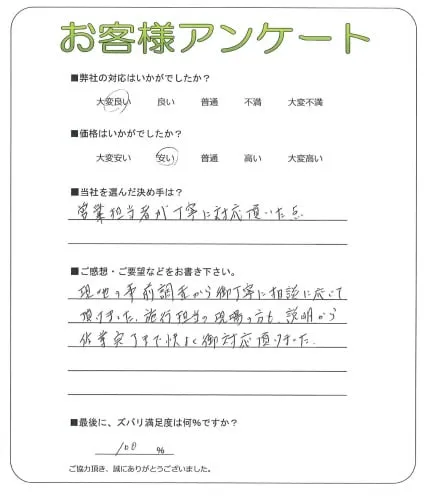 お客様アンケート
■弊社の対応はいかがでしたか？
大変良い 良い 普通 不満 大変不満
■価格はいかがでしたか？
大変安い 安い 普通 高い 大変高い
■当社を選んだ決め手は？
営業担当者が丁寧に対応頂いた点
■ご感想・ご要望などをお書き下さい。
現地の事前調査から御丁寧に相談に応じて
頂けました。施行担当の現場の方も、説明から
作業完了まで快よく御対応頂けました。
■最後に、ズバリ満足度は何%ですか？
100 %
ご協力頂き、誠にありがとうございました。